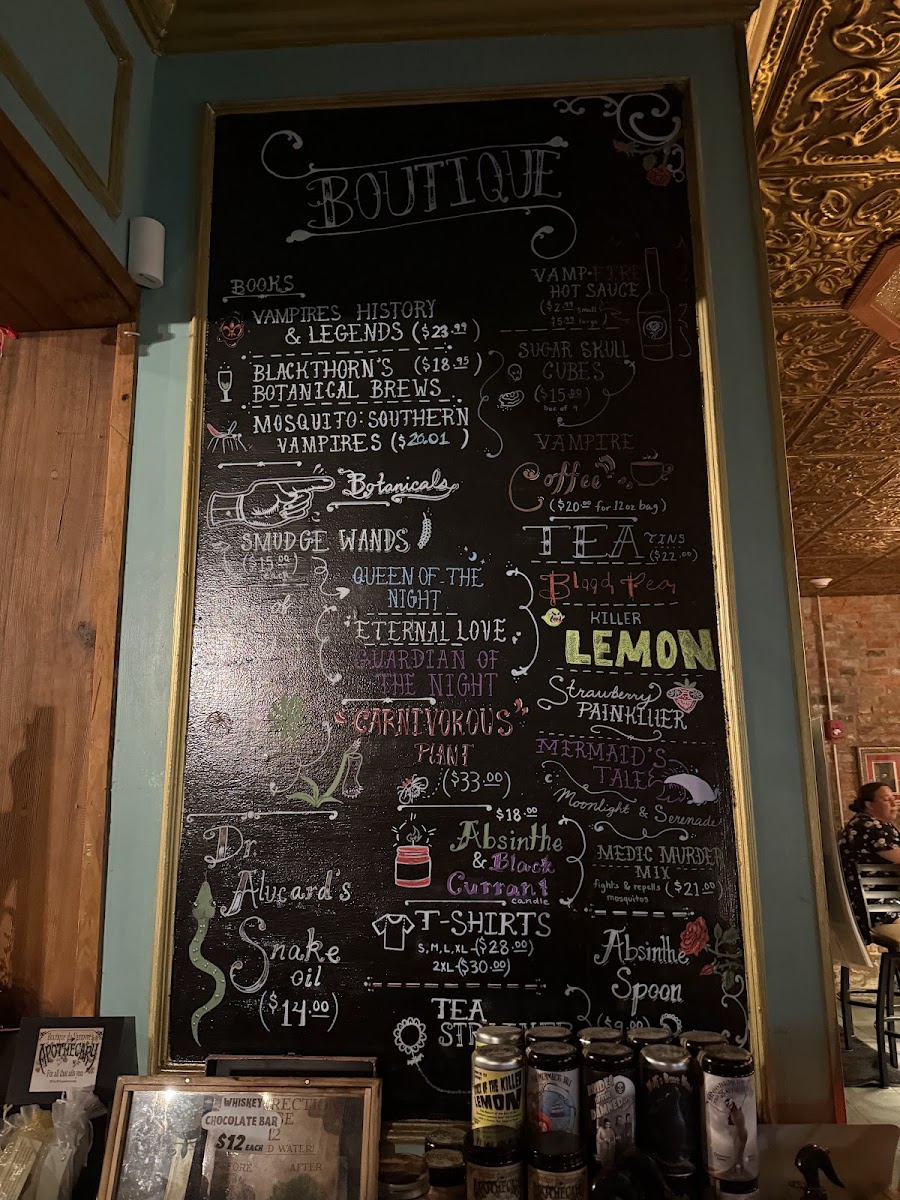 BOUTIQUE
BOOKS
VAMPIRES HISTORY
& LEGENDS ($23.99)
BLACKTHORN'S ($18.95)
BOTANICAL BREWS
MOSQUITO: SOUTHERN
VAMPIRES ($20.01)
Botanicals
SMUDGE WANDS
($15.00)
of
QUEEN OF THE
NIGHT
ETERNAL LOVE
GUARDIAN OF
THE NIGHT
"CARNIVOROUS"
PLANT
($33.00)
Dr.
Alucard's
Snake
oil
($14.00)
$18.00
Absinthe
& Black
Currant
candle
T-SHIRTS
S, M, L, XL-($28.00)
2XL-($30.00)
TEA
VAMP-FIRE
HOT SAUCE
($2.99 small
$5.99 large)
SUGAR SKULL
CUBES
($15.00)
box of 9
VAMPIRE
Coffee
($20.00 for 12oz bag)
TEA TINS
($22.00)
Blood Pea
KILLER
LEMON
Strawberry
PAINKILLER
MERMAID'S
TALE
Moonlight & Serenade
MEDIC MURDER
MIX
fights & repells ($21.00)
mosquitos
Absinthe
Spoon
($9.00)
APOTHECARY
For all that ails you
WHISKEY
CHOCOLATE BAR
$12 EACH
WATER!
AFTER
KILLER
LEMON
APOTHECARY